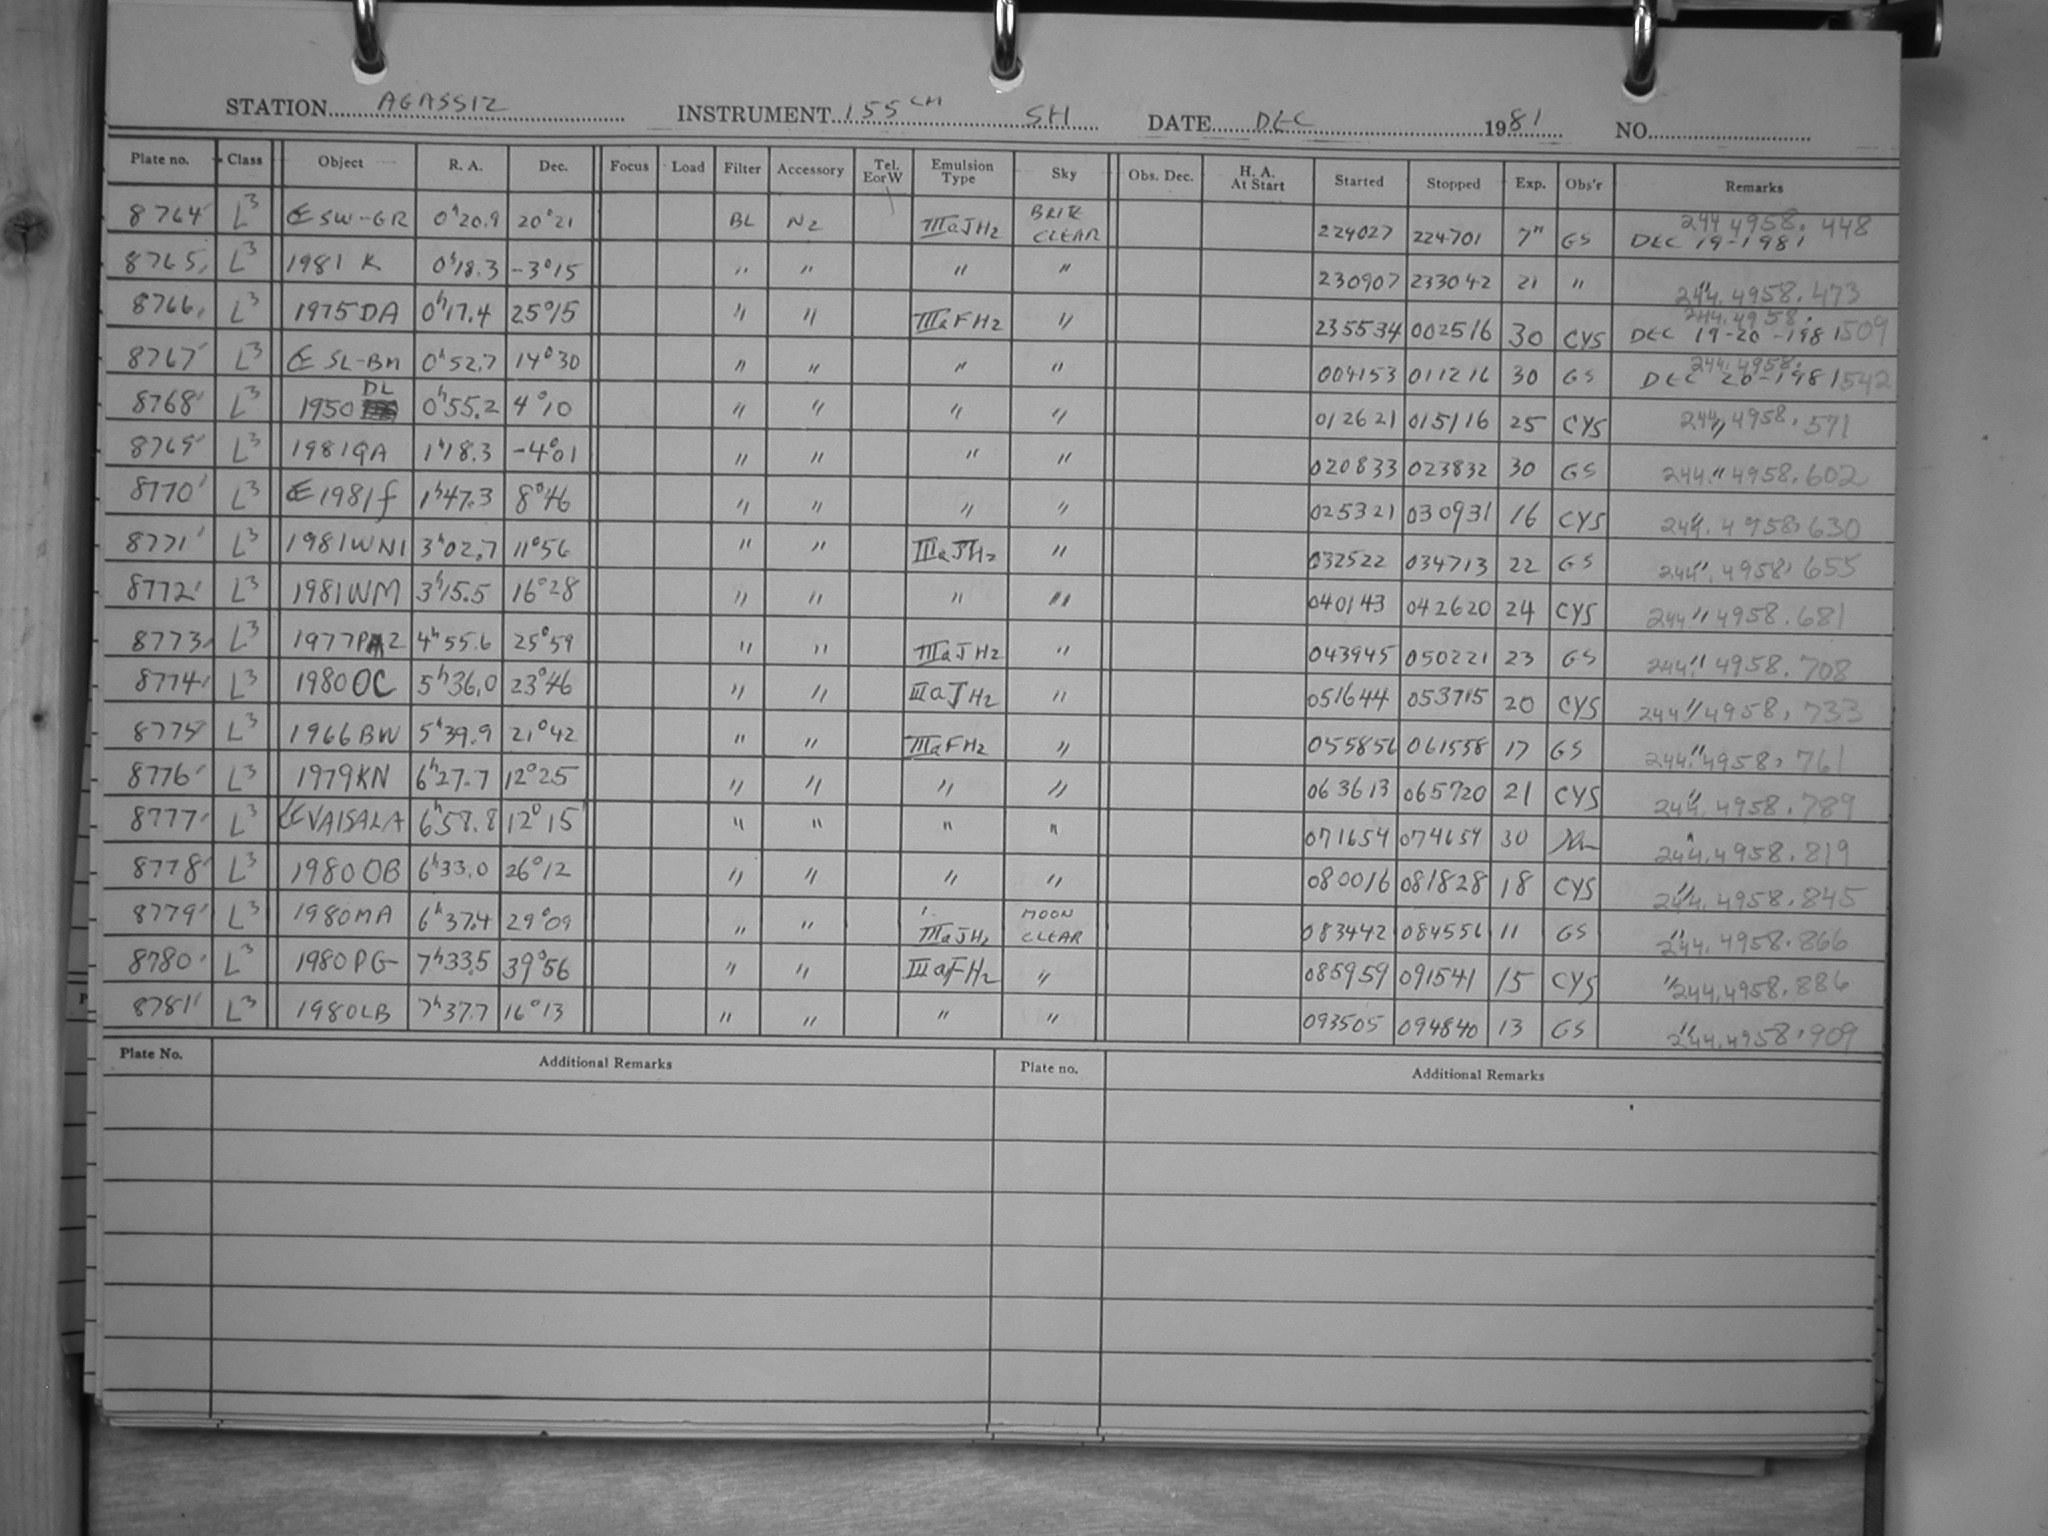 STATION AGASSIZ INSTRUMENT 155 CM SH DATE DEC 1981 NO.
Plate no. Class Object R. A. Dec. Focus Load Filter Accessory Tel. E or W Emulsion Type Sky Obs. Dec. H. A. At Start Started Stopped Exp. Obs'r Remarks
8764 L3 SW-GR 0h20.9 20°21 BL N2 IIIaJH2 BRITE CLEAR 224027 224701 7m GS 244 4958.448 DEC 19-1981
8765 L3 1981 K 0h18.3 -3°15 " " " " 230907 233042 21 " " 244.4958.473
8766 L3 1975DA 0h17.4 25°15 " " IIIaFH2 " 235534 002516 30 CYS 244.4958.509 DEC 19-20-1981
8767 L3 SL-BM 0h52.7 14°30 " " " " 004153 011216 30 GS 244.4958.542 DEC 20-1981
8768 L3 1950 DL 0h55.2 4°10 " " " " 012621 015116 25 CYS " 244.4958.571
8769 L3 1981QA 1h18.3 -4°01 " " " " 020833 023832 30 GS " 244.4958.602
8770 L3 1981f 1h47.3 8°46 " " " " 025321 030931 16 CYS " 244.4958.630
8771 L3 1981WN1 3h02.7 11°56 " " IIIaJH2 " 032522 034713 22 GS " 244.4958.655
8772 L3 1981WM 3h15.5 16°28 " " " " 040143 042620 24 CYS " 244 4958.681
8773 L3 1977 4h55.6 25°59 " " IIIaJH2 " 043945 050221 23 GS " 244.4958.708
8774 L3 1980 OC 5h36.0 23°46 " " IIIaJH2 " 051644 053715 20 CYS " 244 4958.733
8775 L3 1966BW 5h39.9 21°42 " " IIIaFH2 " 055856 061558 17 GS " 244.4958.761
8776 L3 1979KN 6h27.7 12°25 " " " " 063613 065720 21 CYS " 244.4958.789
8777 L3 VAISALA 6h58.8 12°15 " " " " 071654 074654 30 " 244.4958.819
8778 L3 1980 OB 6h33.0 26°12 " " " " 080016 081828 18 CYS " 244.4958.845
8779 L3 1980MA 6h37.4 29°09 " " IIIaJH2 MOON CLEAR 083442 084556 11 GS " 244.4958.866
8780 L3 1980PG 7h33.5 39°56 " " IIIaFH2 " 085959 091541 15 CYS " 244.4958.886
8781 L3 1980LB 7h37.7 16°13 " " " " 093505 094840 13 GS " 244.4958.909
Plate No. Additional Remarks Plate no. Additional Remarks